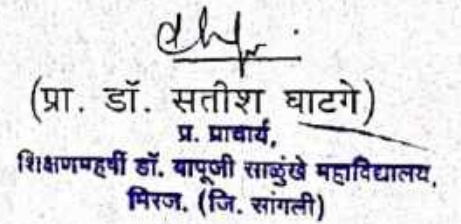 (प्रा. डॉ. सतीश घाटगे)
प्र. प्राचार्य,
शिक्षणमहर्षी डॉ. बापूजी साळुंखे महाविद्यालय,
मिरज. (जि. सांगली)